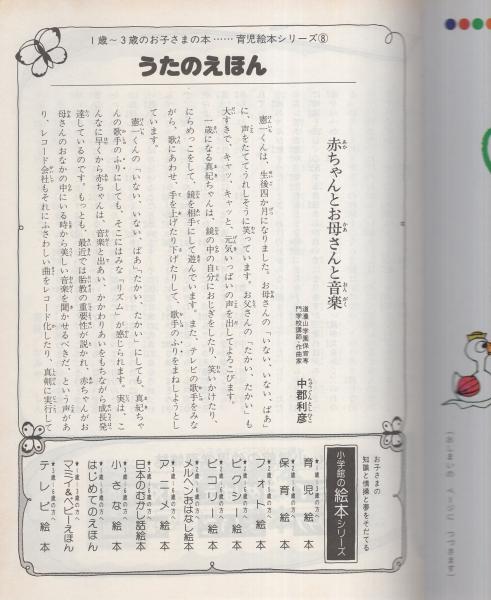 1歳~3歳のお子さまの本……育児絵本シリーズ⑧
うたのえほん
赤ちゃんとお母さんと音楽
道灌山学園保育専
門学校講師・作曲家
中郡利彦
憲一くんは、生後四か月になりました。お母さんの「いない、いない、ばあ」
に、声をたててうれしそうに笑っています。お父さんの「たかい、たかい」も
大すきで、キャッ、キャッと、元気いっぱいの声を出してよろこびます。
一歳になる真紀ちゃんは、鏡の中の自分におじぎをしたり、笑いかけたり、
にらめっこをして、鏡を相手にして遊んでいます。また、テレビの歌手をみな
がら、歌にあわせ、手を上げたり下げたりして、歌手のふりをまねしようとし
ています。
憲一くんの「いない、いない、ばあ」「たかい、たかい」にしても、真紀ちゃ
んの歌手のふりにしても、そこにはみな「リズム」が感じられます。実は、こ
んなに早くから赤ちゃんは、音楽と出あい、かかわりあいをもちながら成長発
達しているのです。もっとも、最近では胎教の重要性が説かれ、赤ちゃんがお
母さんのおなかの中にいる時から美しい音楽を聞かせるべきだ、という声があ
り、レコード会社もそれにふさわしい曲をレコード化したり、真剣に実行して
お子さまの
知識と情操と夢をそだてる
小学館の絵本シリーズ
育児絵本
保育絵本
フォト絵本
ピクシー絵本
ビューティー絵本
メルヘンおはなし絵本
アニメ絵本
日本のむかし話絵本
小さな絵本
はじめてのえほん
マミイ&ベビーえほん
テレビ絵本
(おしまいの ページに つづきます)